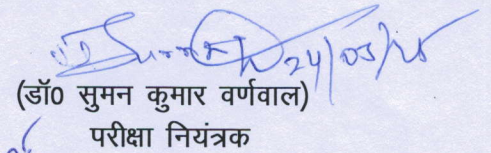 24/05/25
(डॉ0 सुमन कुमार वर्णवाल)
परीक्षा नियंत्रक